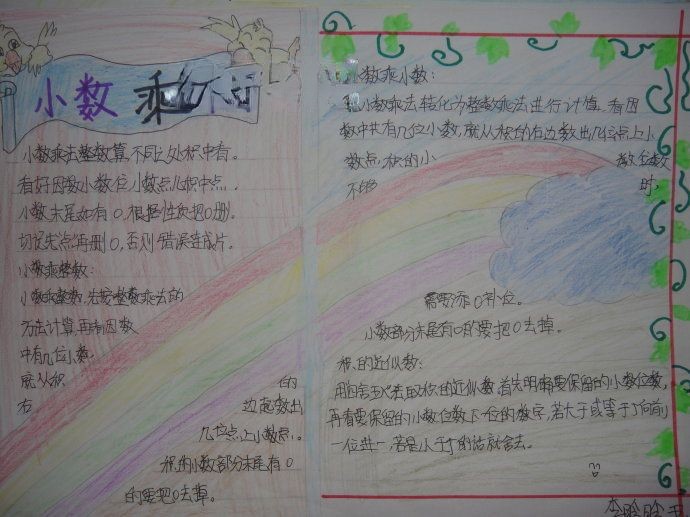 小数乘
小数乘法整数算,不同之处积中看。
看好因数小数位,小数点儿积中点。
小数末尾如有0,根据性质把0删。
切记先点再删0,否则错误连成片。
小数乘整数:
小数乘整数,先按整数乘法的
方法计算,再看因数
中有几位小数,
就从积 的
右 边起数出
几位点上小数点。
积的小数部分末尾有0
的要把0去掉。
小数乘小数:
把小数乘法转化为整数乘法进行计值。看因
数中共有几位小数,就从积的右边数出几位点上小
数点,积的小 数位数
不够 时,
需要添0补位。
小数部分末尾有0的要把0去掉。
积的近似数:
用四舍五入法取积的近似数,首先明确需要保留的小数位数,
再看要保留的小数位数下一位的数字,若大于或等于5向前
一位进一,若是小于5的话就舍去。